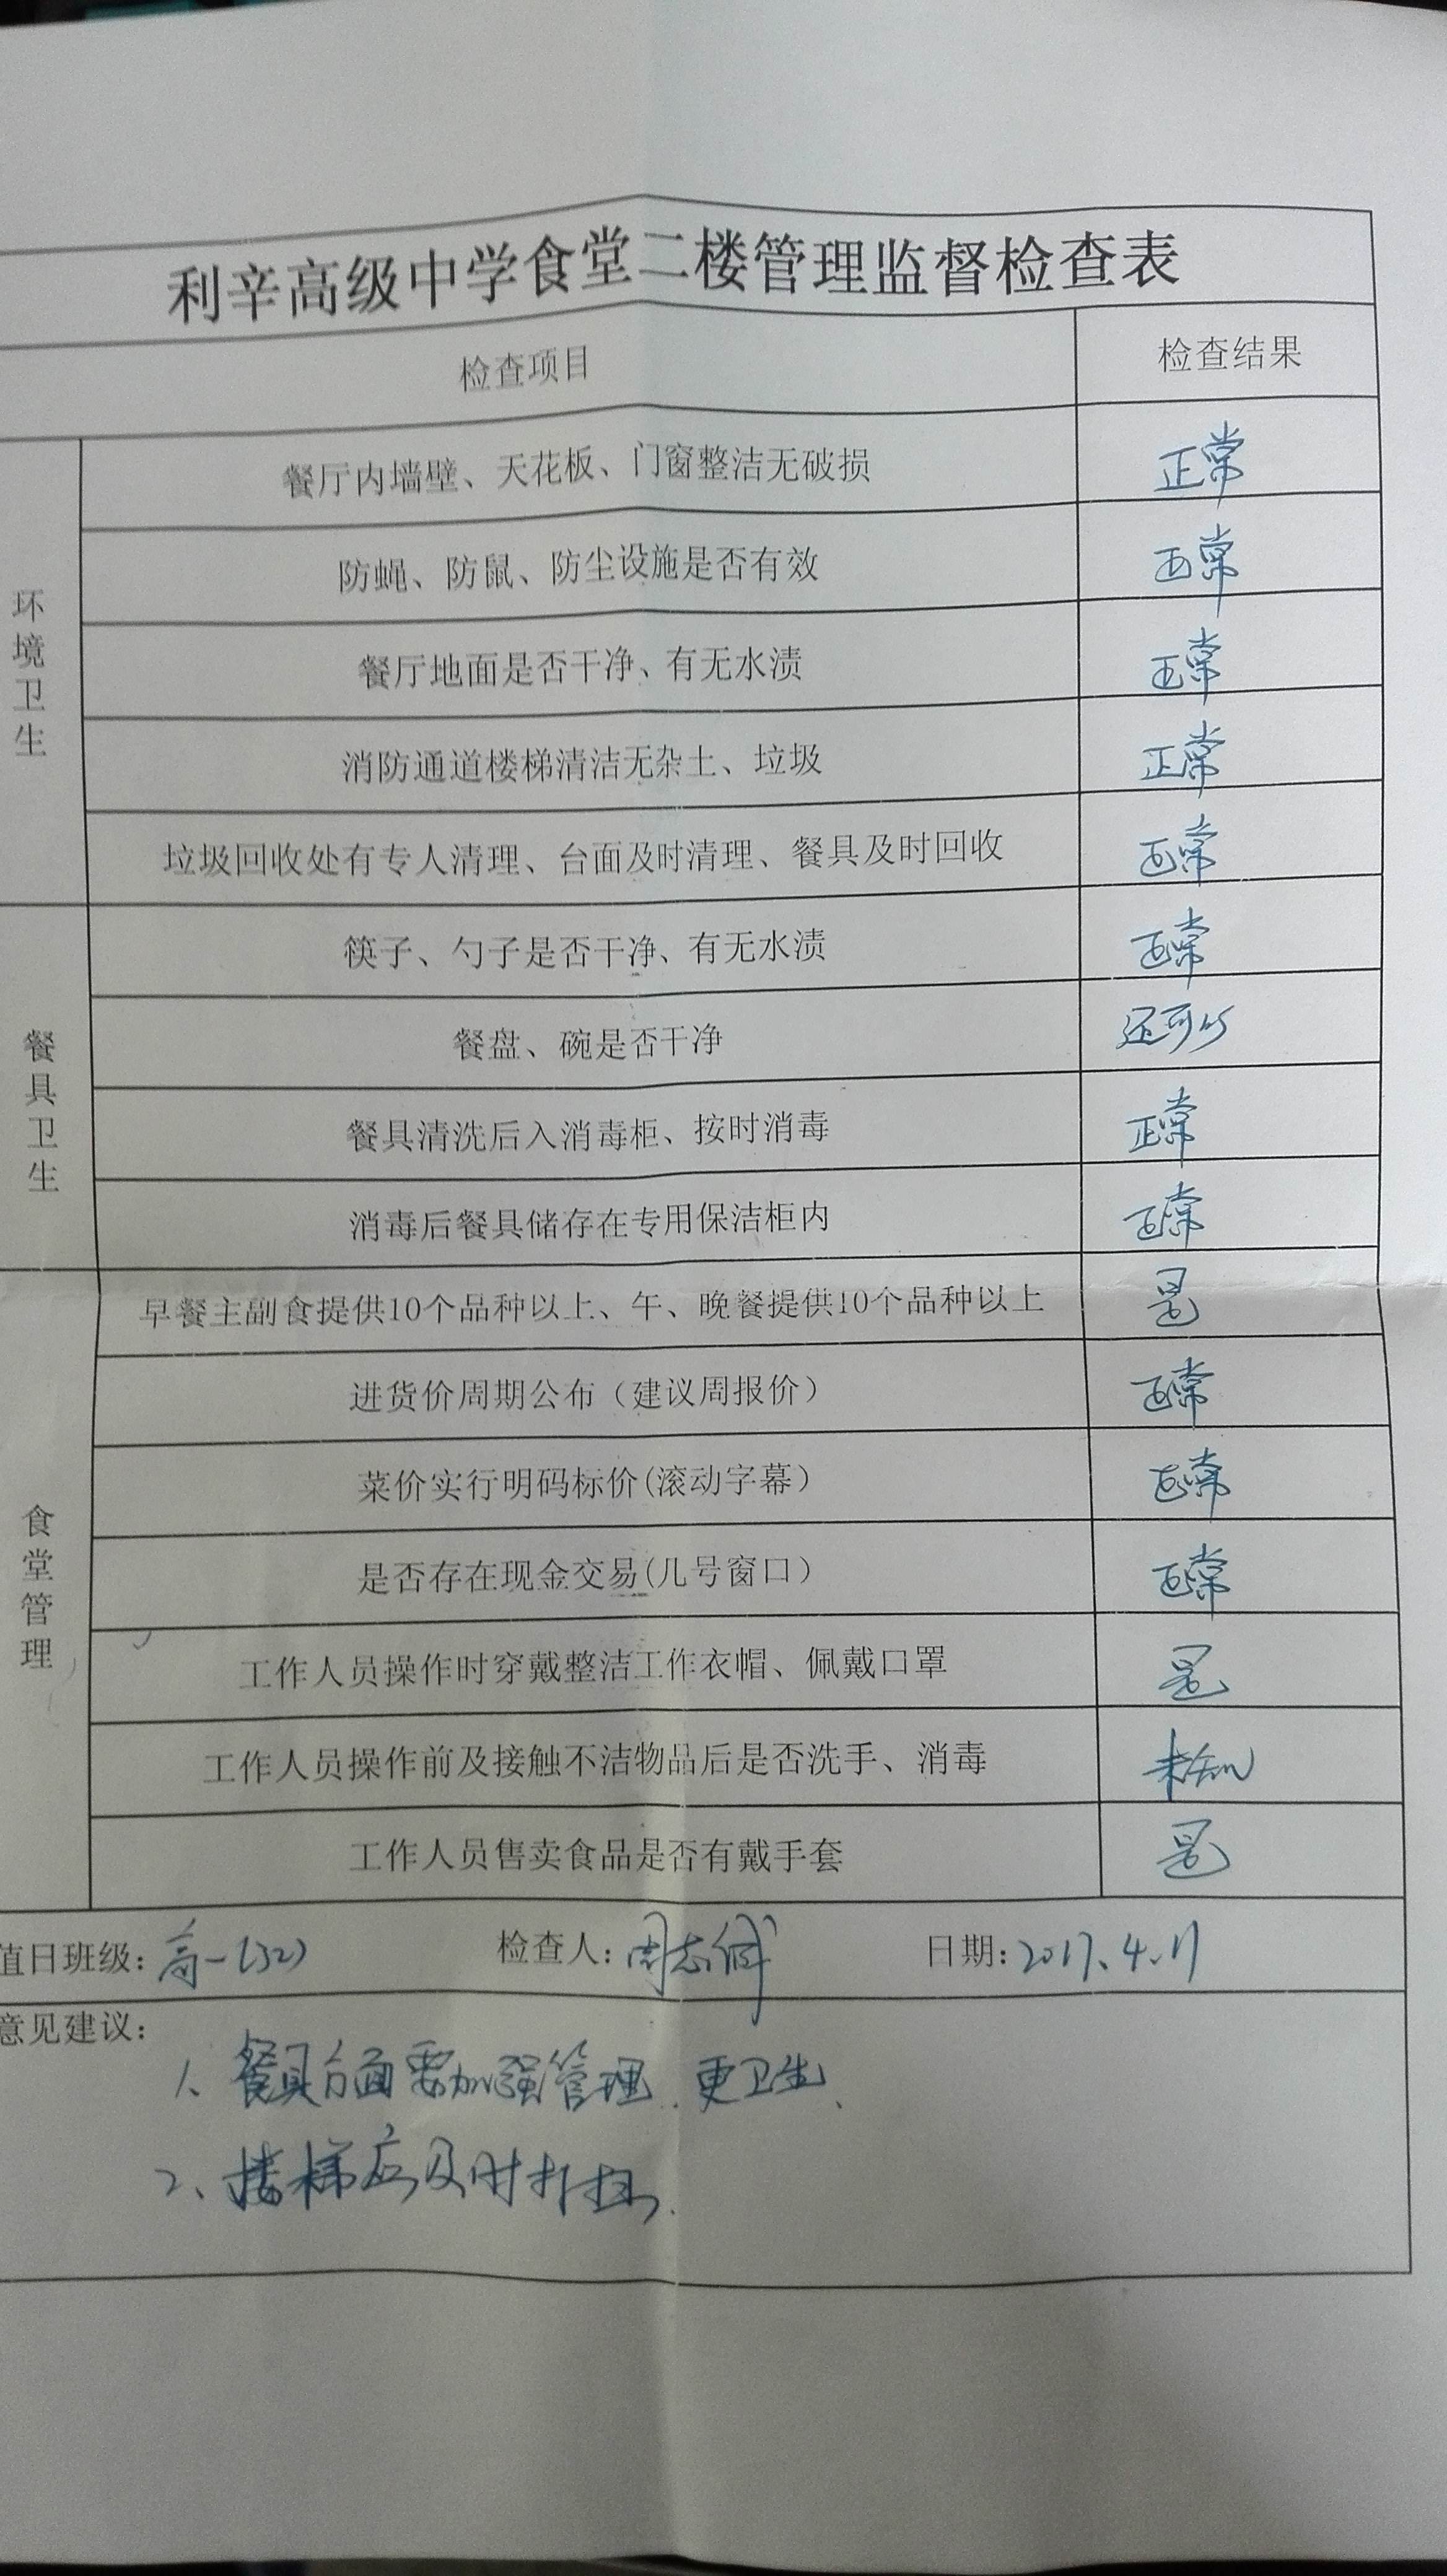 利辛高级中学食堂二楼管理监督检查表
检查项目 检查结果
环境卫生
餐厅内墙壁、天花板、门窗整洁无破损 正常
防蝇、防鼠、防尘设施是否有效 正常
餐厅地面是否干净、有无水渍 正常
消防通道楼梯清洁无杂土、垃圾 正常
垃圾回收处有专人清理、台面及时清理、餐具及时回收 正常
餐具卫生
筷子、勺子是否干净、有无水渍 正常
餐盘、碗是否干净 还可以
餐具清洗后入消毒柜、按时消毒 正常
消毒后餐具储存在专用保洁柜内 正常
食堂管理
早餐主副食提供10个品种以上、午、晚餐提供10个品种以上 是
进货价周期公布（建议周报价） 正常
菜价实行明码标价(滚动字幕） 正常
是否存在现金交易(几号窗口） 正常
工作人员操作时穿戴整洁工作衣帽、佩戴口罩 是
工作人员操作前及接触不洁物品后是否洗手、消毒 未知
工作人员售卖食品是否有戴手套 是
值日班级：高一(32) 检查人：周志 日期：2017.4.17
意见建议：
1、餐具方面要加强管理.更卫生、
2、楼梯应及时打扫.